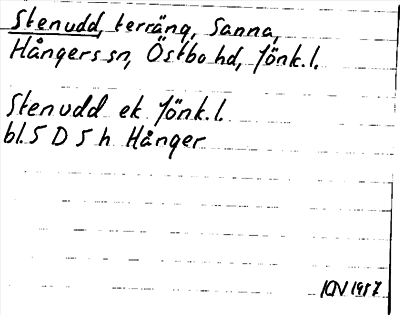 Stenudd, terräng, Sanna,
Hångers sn, Östbo hd, Jönk.l.
Stenudd ek Jönk.l.
bl. 5 D 5 h Hånger
KN 1957